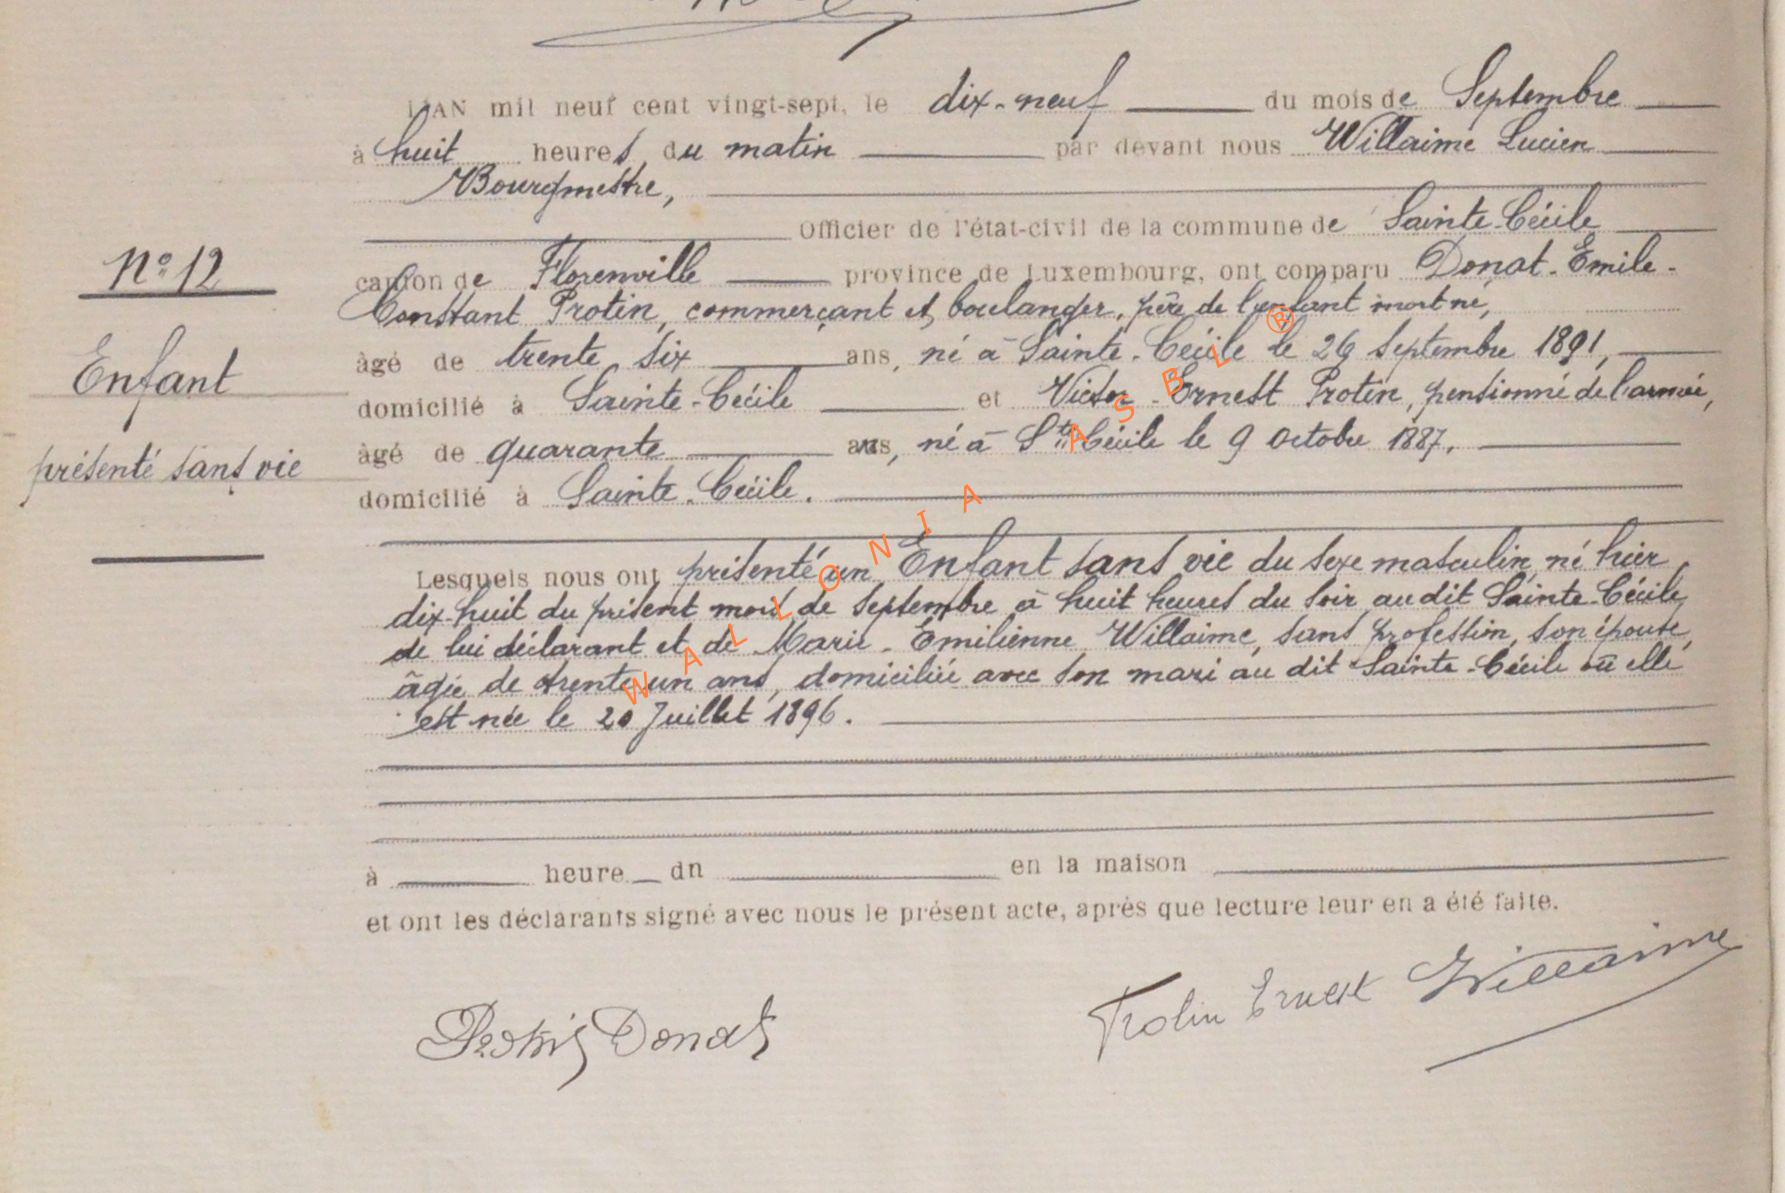 L'AN mil neuf cent vingt-sept, le dix-neuf du mois de Septembre
à huit heures du matin par devant nous Willaime Lucien
Bourgmestre,
Officier de l'état-civil de la commune de Sainte-Cécile
N° 12
canton de Florenville province de Luxembourg, ont comparu Donat-Emile-
Constant Protin, commerçant et boulanger, père de l'enfant mort né,
Enfant
âgé de trente six ans, né à Sainte-Cécile le 26 Septembre 1891,
domicilié à Sainte-Cécile et Victor-Ernest Protin, pensionné de l'armée,
présenté sans vie
âgé de quarante ans, né à Ste Cécile le 9 octobre 1887.
domicilié à Sainte-Cécile.
Lesquels nous ont présenté un Enfant sans vie du sexe masculin, né hier
dix-huit du présent mois de Septembre à huit heures du soir au dit Sainte-Cécile
de lui déclarant et de Marie-Emilienne Willaime, sans profession, son épouse,
âgée de trente un ans, domiciliée avec son mari au dit Sainte-Cécile où elle
est née le 20 Juillet 1896.
à heure dn en la maison
et ont les déclarants signé avec nous le présent acte, après que lecture leur en a été faite.
Protin Donat Protin Ernest Willaime
WALLONIA ASBL ®